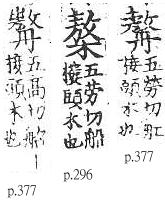 五高切船丨
接頭木也
p.377
五劳切船
接頭木也
p.296
五劳切舡
接頭木也
p.377